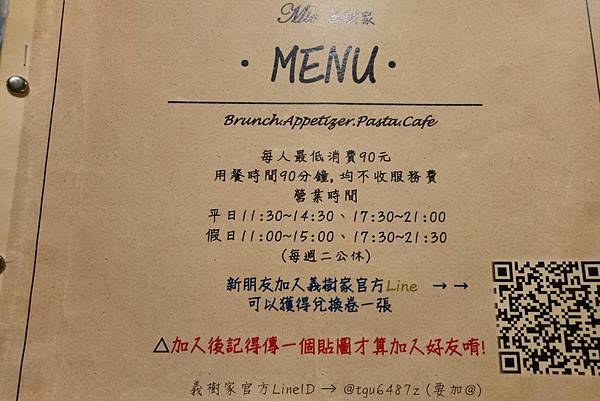 樹家
• MENU •
Brunch.Appetizer.Pasta.Cafe
每人最低消費90元
用餐時間90分鐘,均不收服務費
營業時間
平日11:30~14:30、17:30~21:00
假日11:00~15:00、17:30~21:30
(每週二公休)
新朋友加入義樹家官方Line →→
可以獲得兌換卷一張
△加入後記得傳一個貼圖才算加入好友唷!
義樹家官方LineID → @tgu6487z(要加@)